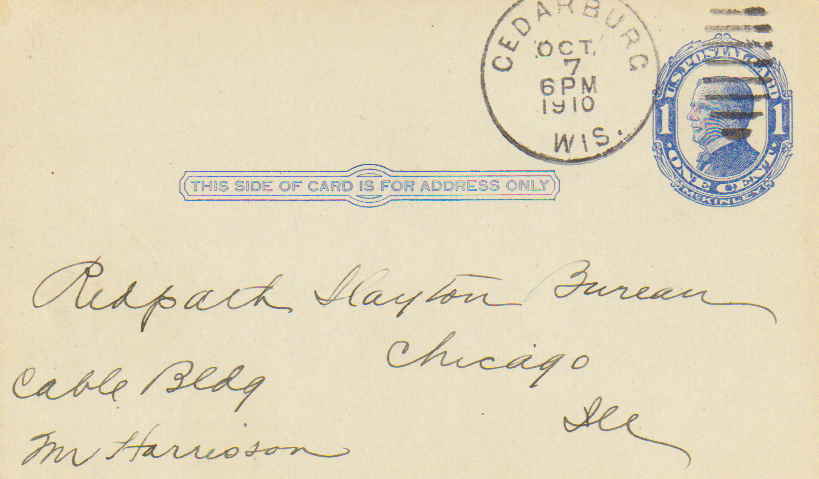 CEDARBURG
OCT.
7
6PM
1910
WIS.
U.S. POSTAL CARD
1 1
ONE CENT
McKINLEY
THIS SIDE OF CARD IS FOR ADDRESS ONLY
Redpath Slayton Bureau
Chicago
Cable Bldg
Ill
Mr Harrison